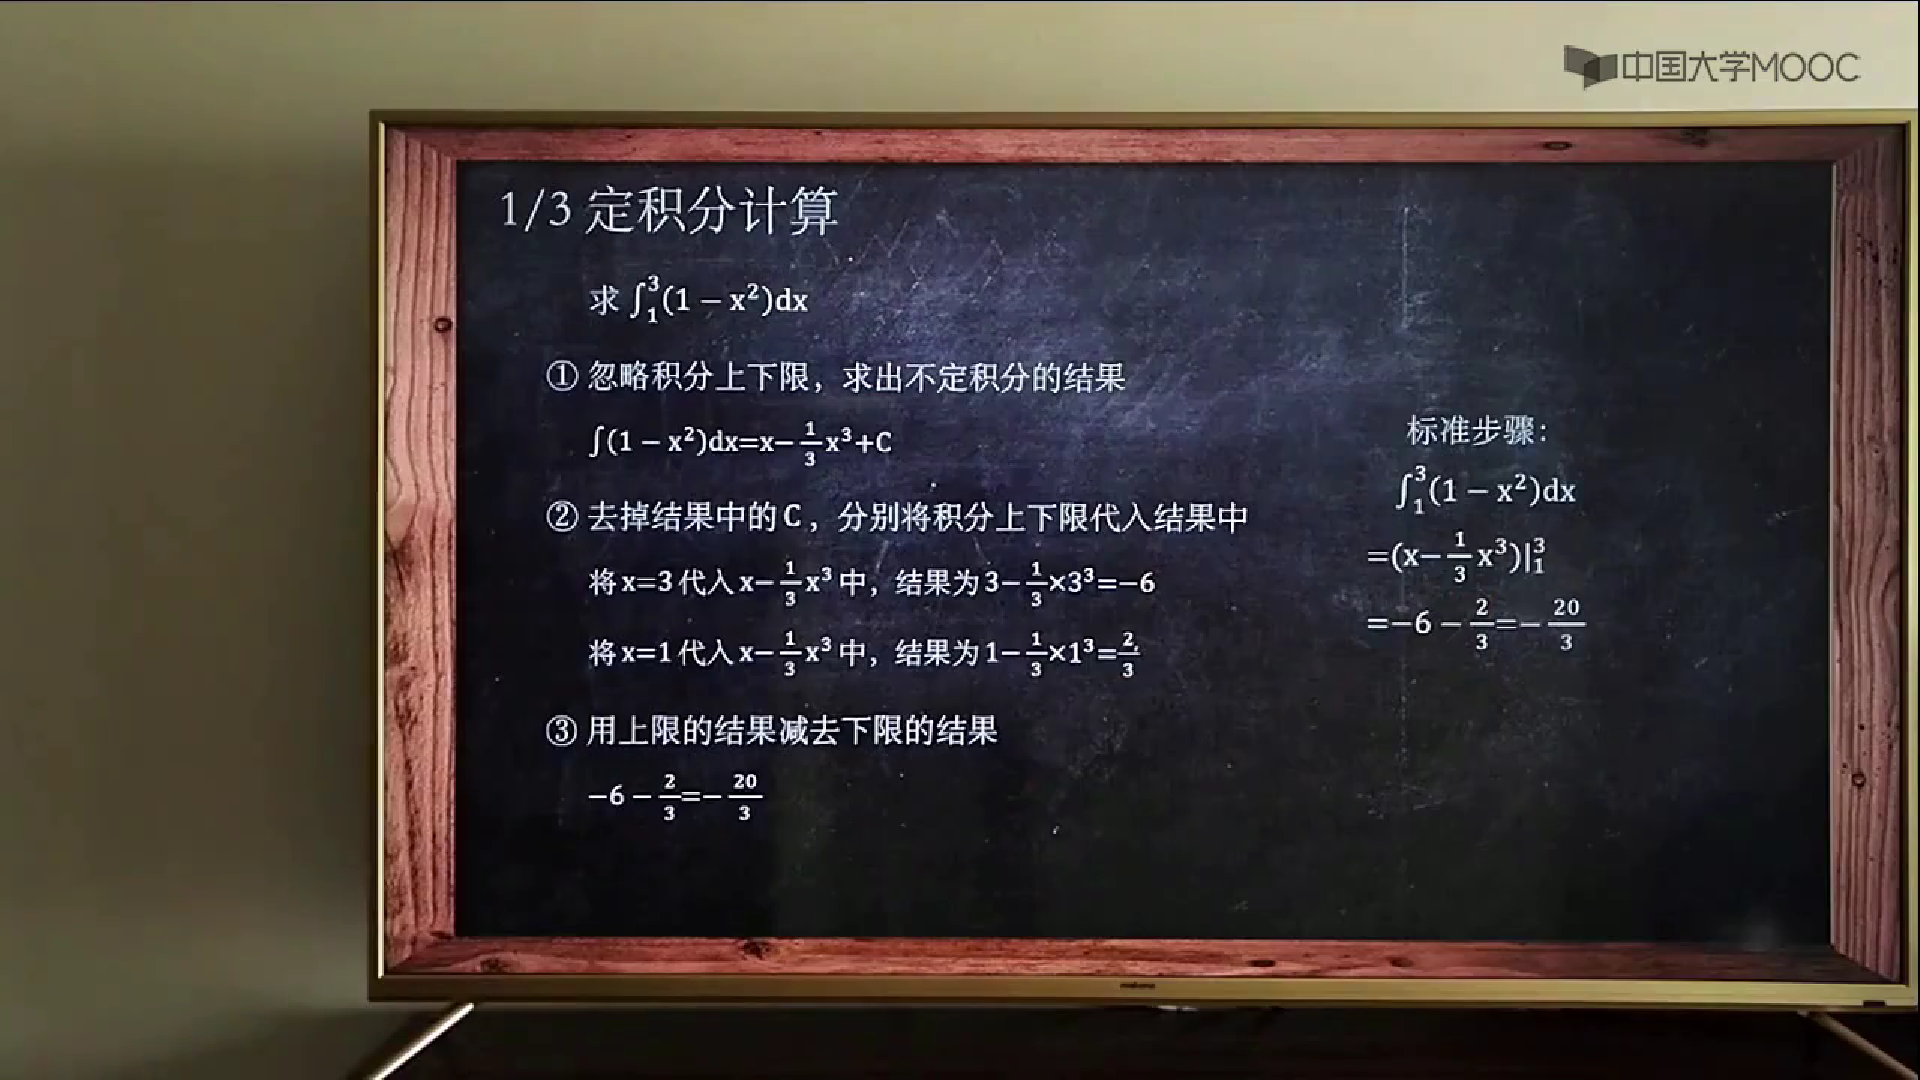 中国大学MOOC
1/3 定积分计算
求 ∫₁³(1 − x²)dx
① 忽略积分上下限，求出不定积分的结果
∫(1 − x²)dx=x−1/3 x³+C
② 去掉结果中的C，分别将积分上下限代入结果中
将x=3代入x−1/3 x³中，结果为3−1/3×3³=−6
将x=1代入x−1/3 x³中，结果为1−1/3×1³=2/3
③ 用上限的结果减去下限的结果
−6 − 2/3=−20/3
标准步骤：
∫₁³(1 − x²)dx
=(x−1/3 x³)|₁³
=−6 − 2/3=−20/3